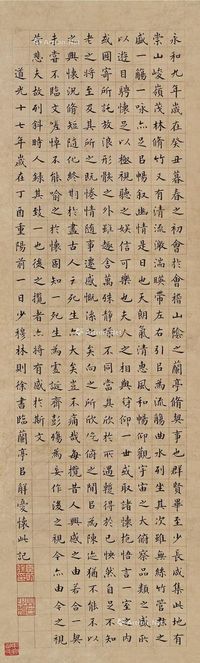 永和九年歲在癸丑暮春之初會於會稽山陰之蘭亭脩稧事也群賢畢至少長咸集此地有
崇山峻嶺茂林脩竹又有清流激湍暎帶左右引㠯為流觴曲水列坐其次雖無絲竹管弦之
盛一觴一咏亦足㠯暢敘幽情是日也天朗氣清惠風和暢仰觀宇宙之大俯察品類之盛所
以遊目騁懷足以極視聽之娛信可樂也夫人之相與俯仰一世或取諸懷抱悟言一室之內
或因寄所託放浪形骸之外雖趣舍萬殊靜躁不同當其欣於所遇蹔得於己怏然自足不知
老之將至及其所之既惓情隨事遷感慨係之矣向之所欣俛仰之間㠯為陳迹猶不能不以
之興懷況脩短隨化終期於盡古人云死生亦大矣豈不痛哉每攬昔人興感之由若合一契
未嘗不臨文嗟悼不能喻之於懷固知一死生為虛誕齊彭殤為妄作後之視今亦由今之視
昔悲夫故列敘時人錄其致一也後之攬者亦將有感於斯文
道光十七年歲在丁酉重陽前一日少穆林則徐書臨蘭亭㠯解憂懷此記